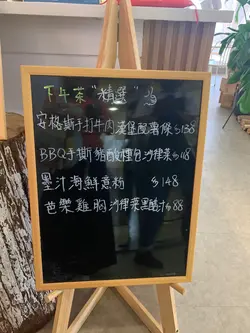 下午茶"精選"
安格斯手打牛肉漢堡配薯條$138
BBQ手撕豬酸種包沙律菜$118
墨汁海鮮意粉 $148
芭樂雞胸沙律菜黑醋汁$88